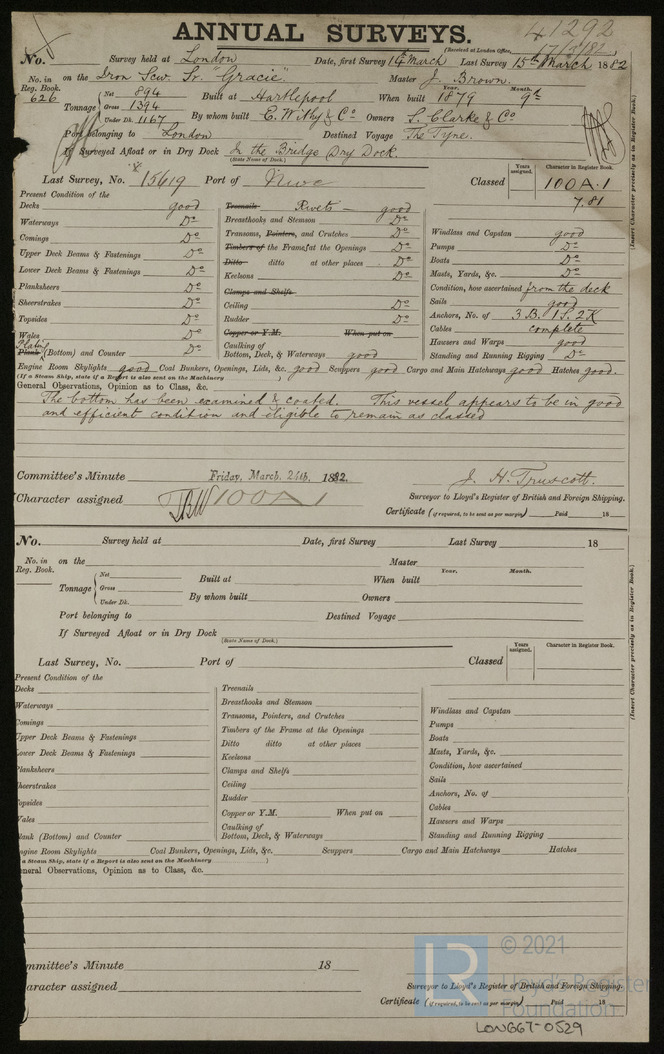 ANNUAL SURVEYS.
41292
(Received at London Office, 17/3/82)
No. Survey held at London Date, first Survey 14th March Last Survey 15th March 1882
No. in Reg. Book. 626 on the Iron Scw. Sr. "Gracie" Master J. Brown.
Tonnage Net 894 Gross 1394 Under Dk. 1167 Built at Hartlepool When built Year. 1879 Month. 9th
By whom built E. Withy & Co Owners S. Clarke & Co
Port belonging to London Destined Voyage The Tyne.
If Surveyed Afloat or in Dry Dock In the Bridge Dry Dock.
(State Name of Dock.)
Last Survey, No. 15619 Port of Nwc Classed Years assigned. Character in Register Book. 100A.1
7.81
(Insert Character precisely as in Register Book.)
Present Condition of the
Decks good
Waterways Do
Comings Do
Upper Deck Beams & Fastenings Do
Lower Deck Beams & Fastenings Do
Planksheers Do
Sheerstrakes Do
Topsides Do
Wales Do
Plating
Plank (Bottom) and Counter Do
Treenails Rivets - good
Breasthooks and Stemson Do
Transoms, Pointers, and Crutches Do
Timbers of the Frames at the Openings Do
Ditto ditto at other places Do
Keelsons Do
Clamps and Shelfs
Ceiling Do
Rudder Do
Copper or Y.M. When put on
Caulking of
Bottom, Deck, & Waterways good
Windlass and Capstan good
Pumps Do
Boats Do
Masts, Yards, &c. Do
Condition, how ascertained from the deck
Sails good
Anchors, No. of 3 B. 1 S. 2 K
Cables complete
Hawsers and Warps good
Standing and Running Rigging Do
Engine Room Skylights good Coal Bunkers, Openings, Lids, &c. good Scuppers good Cargo and Main Hatchways good Hatches good.
(If a Steam Ship, state if a Report is also sent on the Machinery )
General Observations, Opinion as to Class, &c.
The bottom has been examined & coated. This vessel appears to be in good
and efficient condition and eligible to remain as classed
Committee's Minute Friday, March, 24th, 1882. J. H. Truscott.
Character assigned 100A1 Surveyor to Lloyd's Register of British and Foreign Shipping.
Certificate (if required, to be sent as per margin) Paid 18
No. Survey held at Date, first Survey Last Survey 18
No. in Reg. Book. on the Master
Tonnage Net Gross Under Dk. Built at When built Year. Month.
By whom built Owners
Port belonging to Destined Voyage
If Surveyed Afloat or in Dry Dock
(State Name of Dock.)
Last Survey, No. Port of Classed Years assigned. Character in Register Book.
(Insert Character precisely as in Register Book.)
Present Condition of the
Decks
Waterways
Comings
Upper Deck Beams & Fastenings
Lower Deck Beams & Fastenings
Planksheers
heerstrakes
opsides
Vales
lank (Bottom) and Counter
Treenails
Breasthooks and Stemson
Transoms, Pointers, and Crutches
Timbers of the Frame at the Openings
Ditto ditto at other places
Keelsons
Clamps and Shelfs
Ceiling
Rudder
Copper or Y.M. When put on
Caulking of
Bottom, Deck, & Waterways
Windlass and Capstan
Pumps
Boats
Masts, Yards, &c.
Condition, how ascertained
Sails
Anchors, No. of
Cables
Hawsers and Warps
Standing and Running Rigging
ngine Room Skylights Coal Bunkers, Openings, Lids, &c. Scuppers Cargo and Main Hatchways Hatches
a Steam Ship, state if a Report is also sent on the Machinery )
eneral Observations, Opinion as to Class, &c.
mmittee's Minute 18
aracter assigned Surveyor to Lloyd's Register of British and Foreign Shipping.
Certificate (if required, to be sent as per margin) Paid 18
LR © 2021
Lloyd's Register
Foundation
LON667-0529